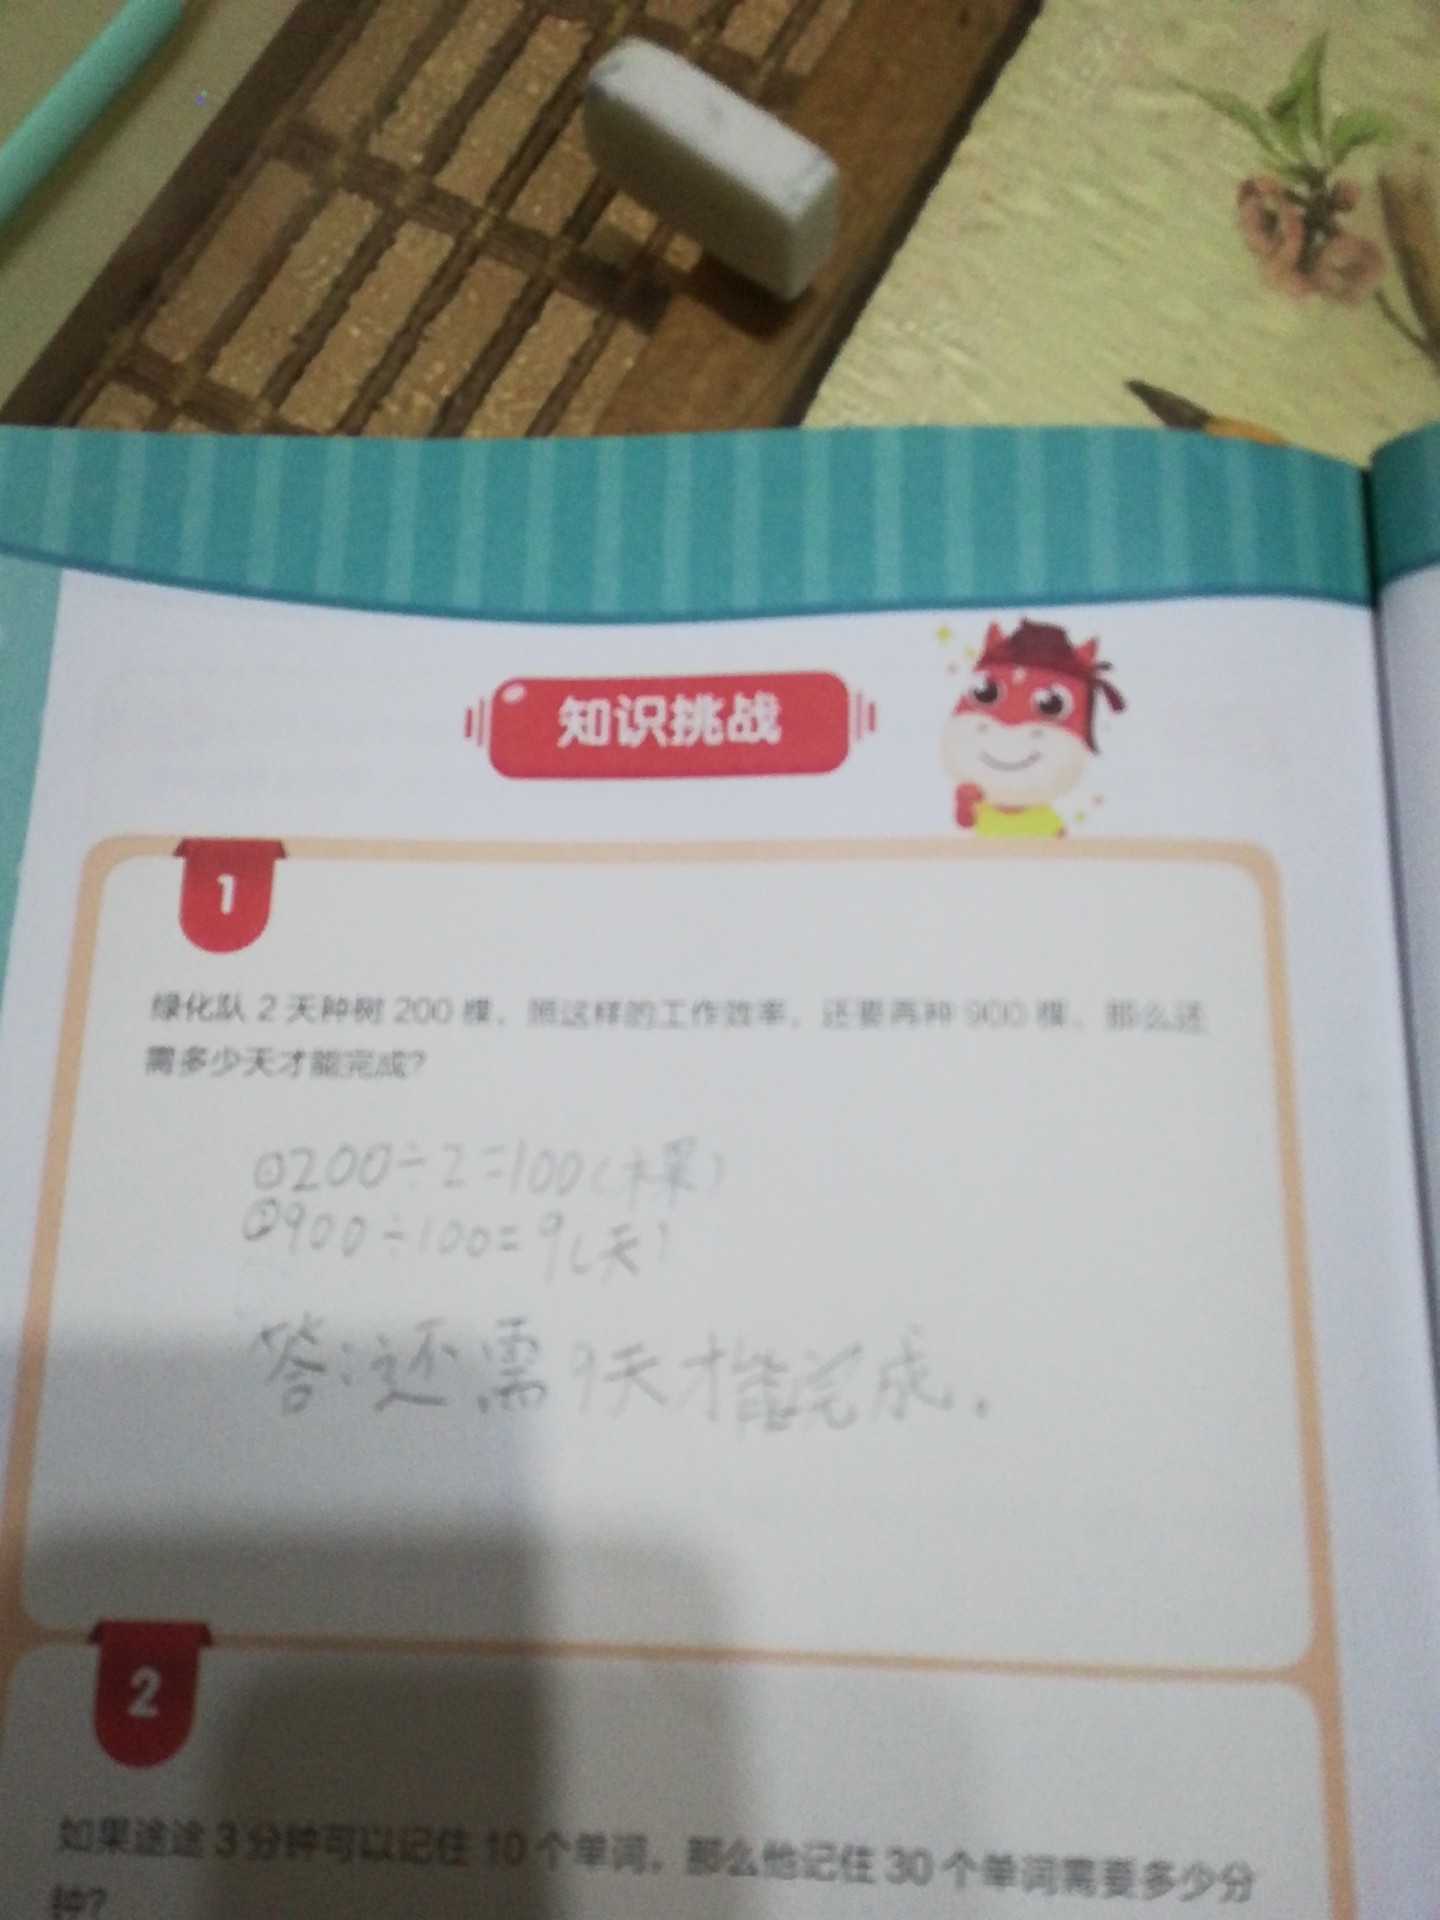 知识挑战
1
绿化队 2 天种树 200 棵，照这样的工作效率，还要再种 900 棵，那么还
需多少天才能完成？
①200÷2=100(棵)
②900÷100=9(天)
答：还需9天才能完成。
2
如果途途 3 分钟可以记住 10 个单词，那么他记住 30 个单词需要多少分
钟？